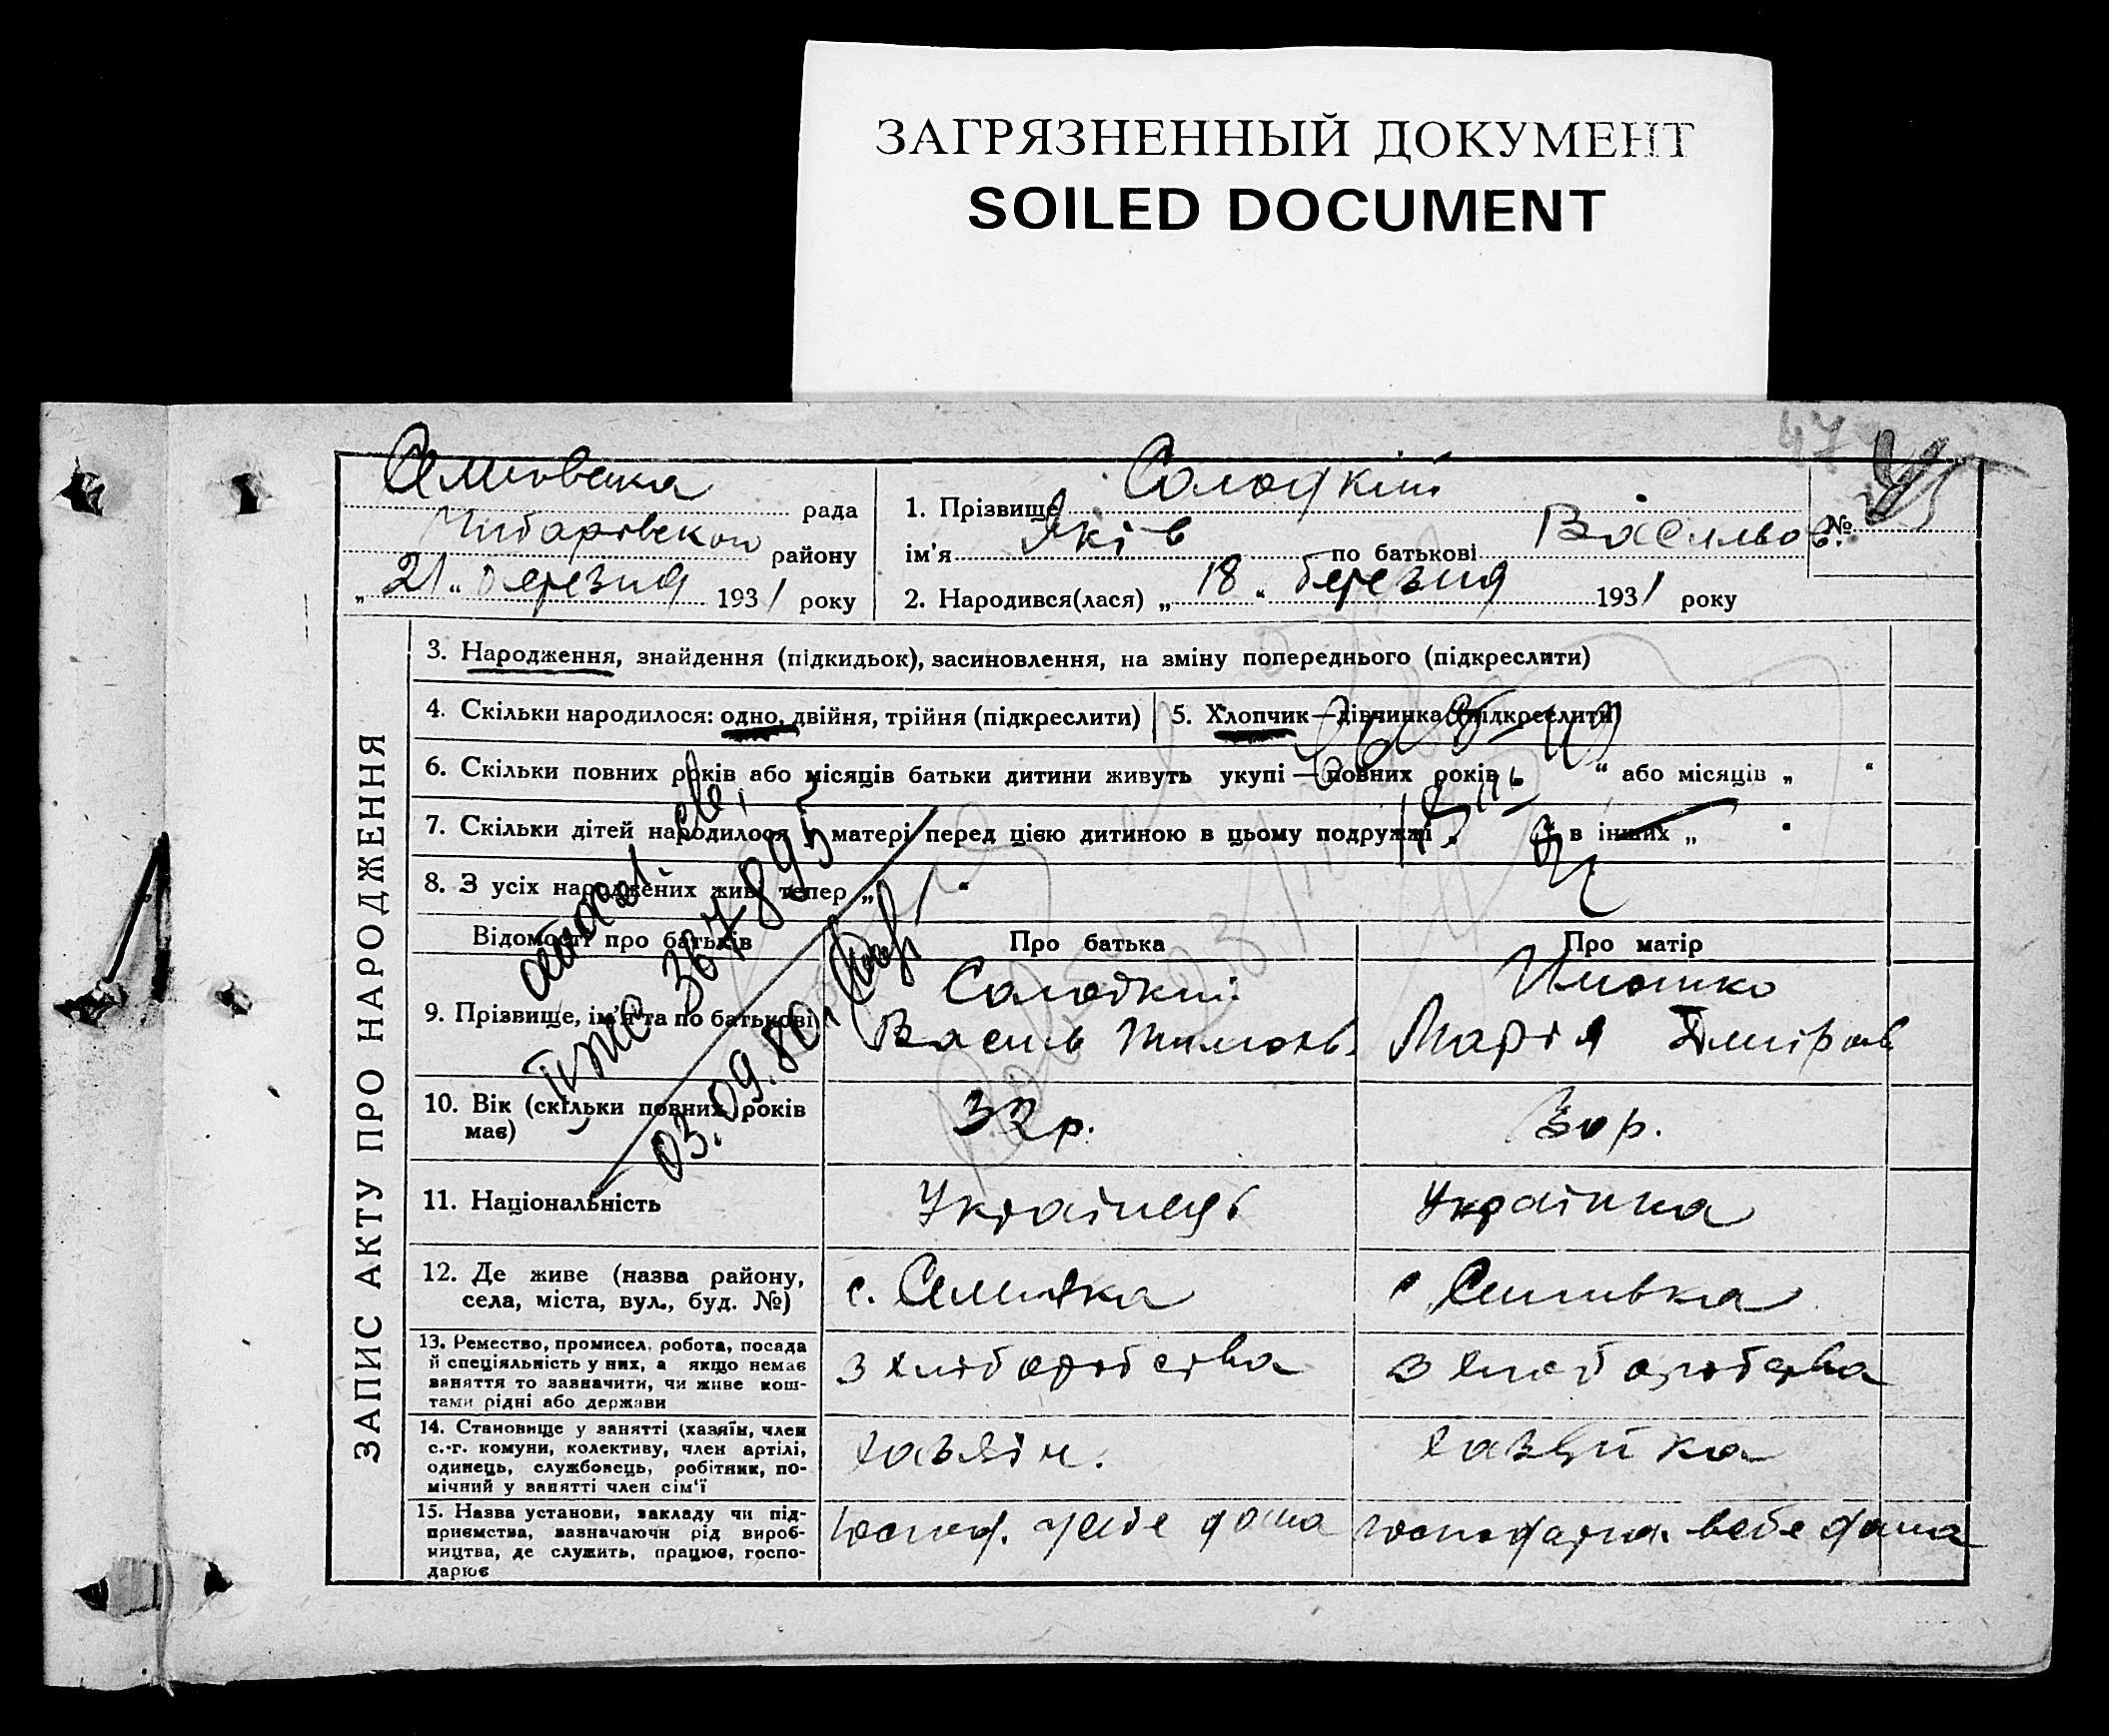 ЗАГРЯЗНЕННЫЙ ДОКУМЕНТ
SOILED DOCUMENT
47
рада
району
„21“ березня 1931 року
1. Прізвище Солодкий
ім'я Яків по батькові Васильов.
№
2. Народився(лася) „18“ березня 1931 року
ЗАПИС АКТУ ПРО НАРОДЖЕННЯ
3. Народження, знайдення (підкидьок), засиновлення, на зміну попереднього (підкреслити)
4. Скільки народилося: одно, двійня, трійня (підкреслити)
5. Хлопчик—дівчинка (підкреслити)
6. Скільки повних років або місяців батьки дитини живуть укупі — повних років “ або місяців „ “
7. Скільки дітей народилося у матері перед цією дитиною в цьому подружжі „ “ в інших „ “
8. З усіх народжених живі тепер „ “
367895
03.09.80
Відомості про батьків
Про батька
Про матір
9. Прізвище, ім'я та по батькові
Солодкий
Василь Тимохв.
Марія
10. Вік (скільки повних років має)
32 р.
30 р.
11. Національність
Українець
Українка
12. Де живе (назва району, села, міста, вул., буд. №)
с. Семивка
с Семивка
13. Ремество, промисел, робота, посада й спеціяльність у них, а якщо немає заняття то зазначити, чи живе коштами рідні або держави
З хліборобства
З хліборобства
14. Становище у занятті (хазяїн, член с.-г. комуни, колективу, член артілі, одинець, службовець, робітник, помічний у занятті член сім'ї
хазяїн.
хазяйка
15. Назва установи, закладу чи підприємства, зазначаючи рід виробництва, де служить, працює, господарює
Господ. у себе дома
Господарка. в себе дома